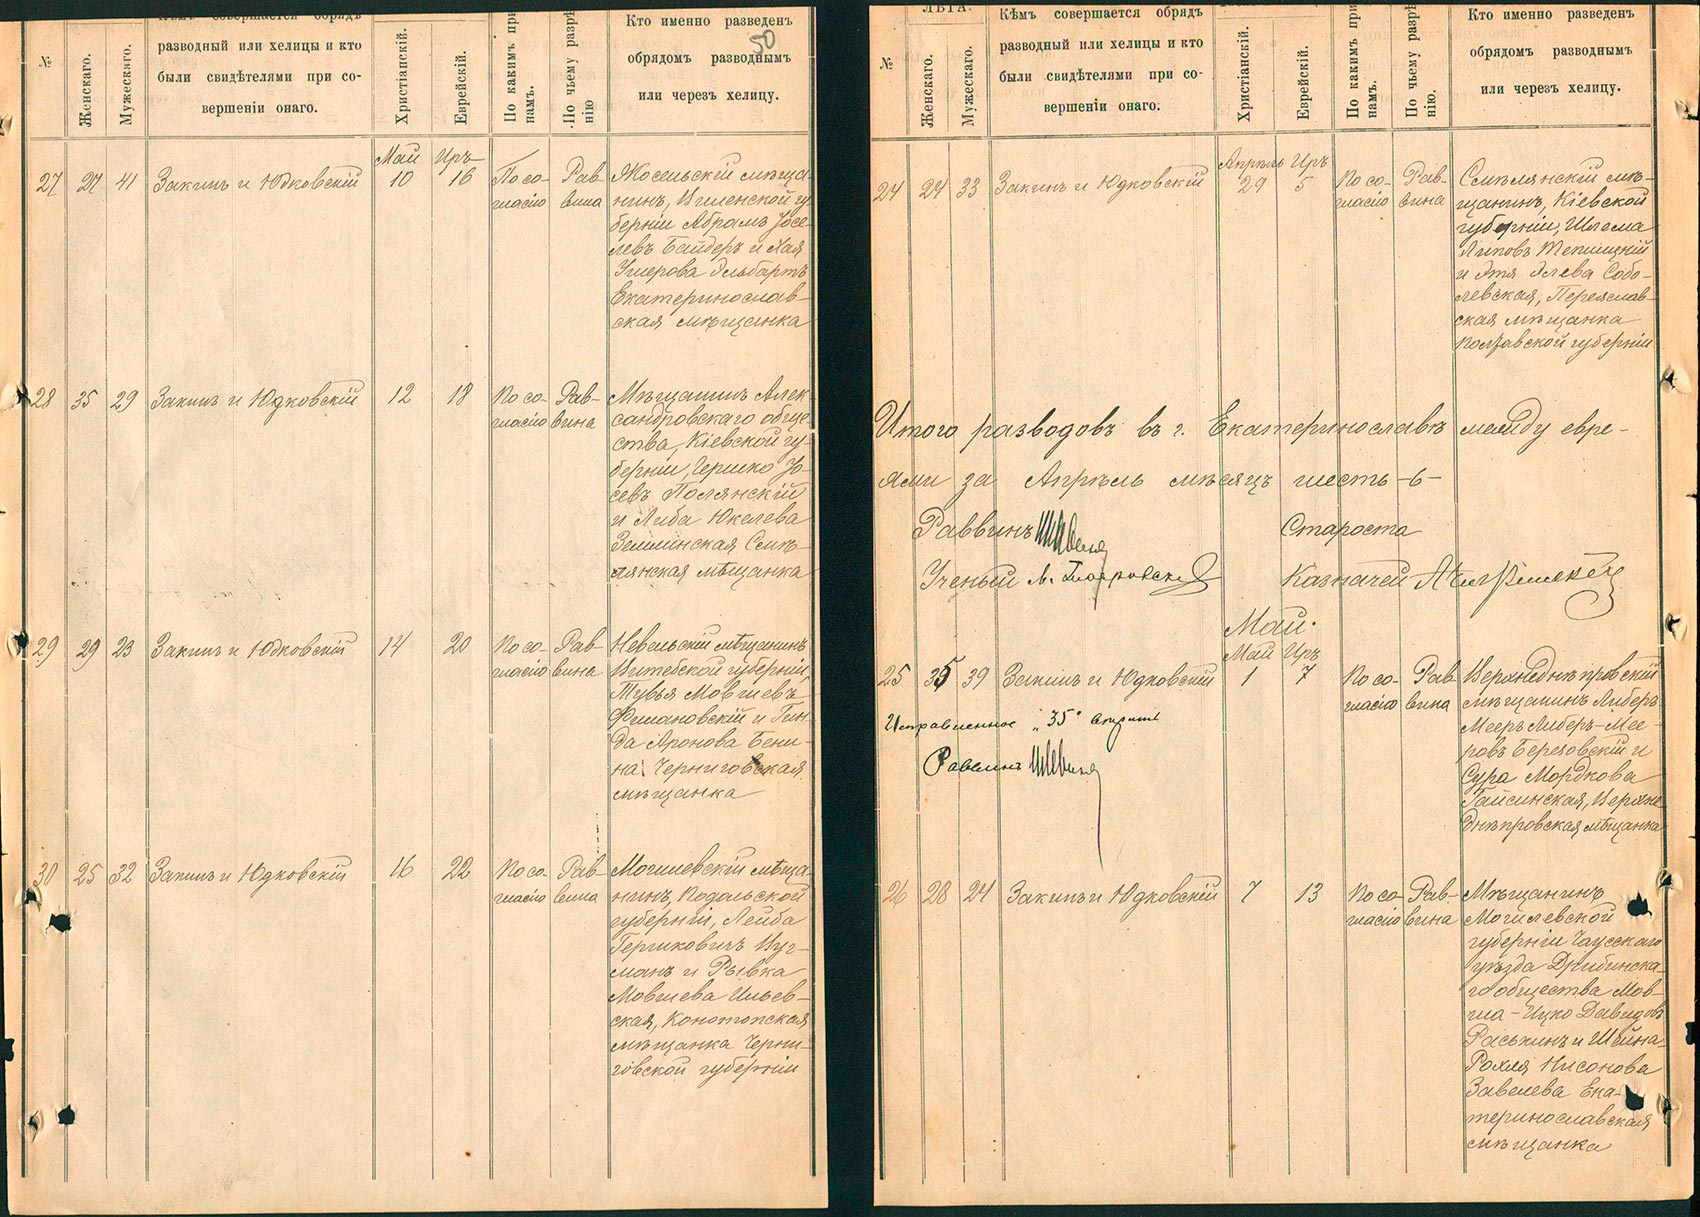 50
№
Женскаго.
Мужескаго.
Кѣмъ совершается обрядъ
разводный или хелицы и кто
были свидѣтелями при со-
вершеніи онаго.
Христіанскій.
Еврейскій.
По какимъ при
намъ.
По чьему разрѣ
нію
Кто именно разведенъ
обрядомъ разводнымъ
или черезъ хелицу.
Май Іръ
27 27 41 Закинъ и Юдковскій 10 16 По со- Рав-
гласію вина
мѣща-
нинъ, Виленской гу
берніи Абрамъ Іосе-
левъ Байдеръ и Хая
Ушерова Эльбартъ
Екатеринослав-
ская мѣщанка
28 35 29 Закинъ и Юдковскій 12 18 По со- Рав-
гласію вина
Мѣщанинъ Алек-
сандровскаго обще-
ства, Кіевской гу-
берніи, Гершко Іо-
севъ Полянскій
и Либа Юкелева
Землинская Смѣ-
лянская мѣщанка
29 29 23 Закинъ и Юдковскій 14 20 По со- Рав-
гласію вина
Невельскій мѣщанинъ
Витебской губерніи,
Тувья Мовшевъ
Фишановскій и Гин-
да Аронова Бени-
на Черниговская
мѣщанка
30 25 32 Закинъ и Юдковскій 16 22 По со- Рав-
гласію вина
Могилевскій мѣща-
нинъ, Подольской
губерніи, Лейба
Гершковичъ Цуг-
манъ и Рывка
Мовшева Ильев-
ская, Конотопская
мѣщанка Черни-
говской губерніи
№
ЛѢТА.
Женскаго.
Мужескаго.
Кѣмъ совершается обрядъ
разводный или хелицы и кто
были свидѣтелями при со-
вершеніи онаго.
Христіанскій.
Еврейскій.
По какимъ при
намъ.
По чьему разрѣ
нію.
Кто именно разведенъ
обрядомъ разводнымъ
или черезъ хелицу.
Апрѣль Іръ
24 24 33 Закинъ и Юдковскій 29 5 По со- Рав-
гласію вина
Смѣлянскій мѣ-
щанинъ, Кіевской
губерніи, Шлема
Липовъ Теплицкій
и Этя Элева Собо-
левская, Переяслав-
ская мѣщанка
Полтавской губерніи
Итого разводовъ въ г. Екатеринославѣ между евре-
ями за Апрѣль мѣсяцъ шесть -6-
Раввинъ Староста
Ученый Казначей
Май.
Май Іръ
25 35 39 Закинъ и Юдковскій 1 7 По со- Рав-
гласію вина
Верхнеднѣпровскій
мѣщанинъ Либеръ-
Мееръ Либеръ-Мее-
ровъ Березовскій и
Сура Мордкова
Гайсинская, Верхне-
днѣпровская мѣщанка
Исправленное „35“
Раввинъ
26 28 24 Закинъ и Юдковскій 7 13 По со- Рав-
гласію вина
Мѣщанинъ
Могилевской
губерніи Чаусскаго
уѣзда Дрибинска-
го общества Мов-
ша-Ицко Давидовъ
Раськинъ и Шейна-
Рохля Нисонова
Завелева Ека-
теринославская
мѣщанка